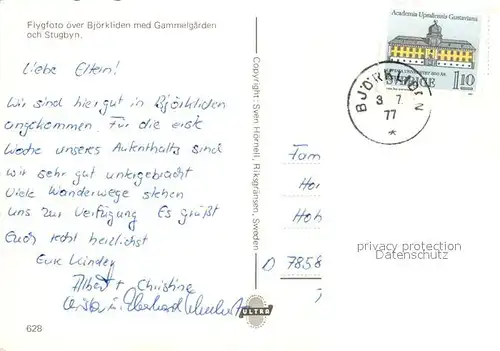 Flygfoto över Björkliden med Gammelgården
och Stugbyn.
Liebe Eltern!
Wir sind hier gut in Björkliden
angekommen. Für die erste
Woche unseres Aufenthalts sind
wir sehr gut untergebracht
Viele Wanderwege stehen
uns zur Verfügung Es grüßt
Euch recht herzlichst
Eure Kinder
Albert + Christine
628
Copyright: Sven Hörnell, Riksgränsen, Sweden
ULTRA
Academia Upsaliensis Gustaviana
SVERIGE
110
BJÖRKLIDEN
3 7
77
*
Fam
Ho
D 7858
privacy protection
Datenschutz